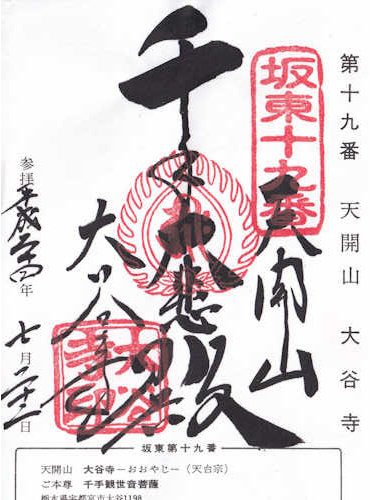 第十九番 天開山 大谷寺
坂東十九番
天開山
千手大悲殿
大谷寺
参拝 平成二四年 七月 日
坂東第十九番
天開山 大谷寺－おおやじ－(天台宗)
ご本尊 千手観世音菩薩
栃木県宇都宮市大谷1198